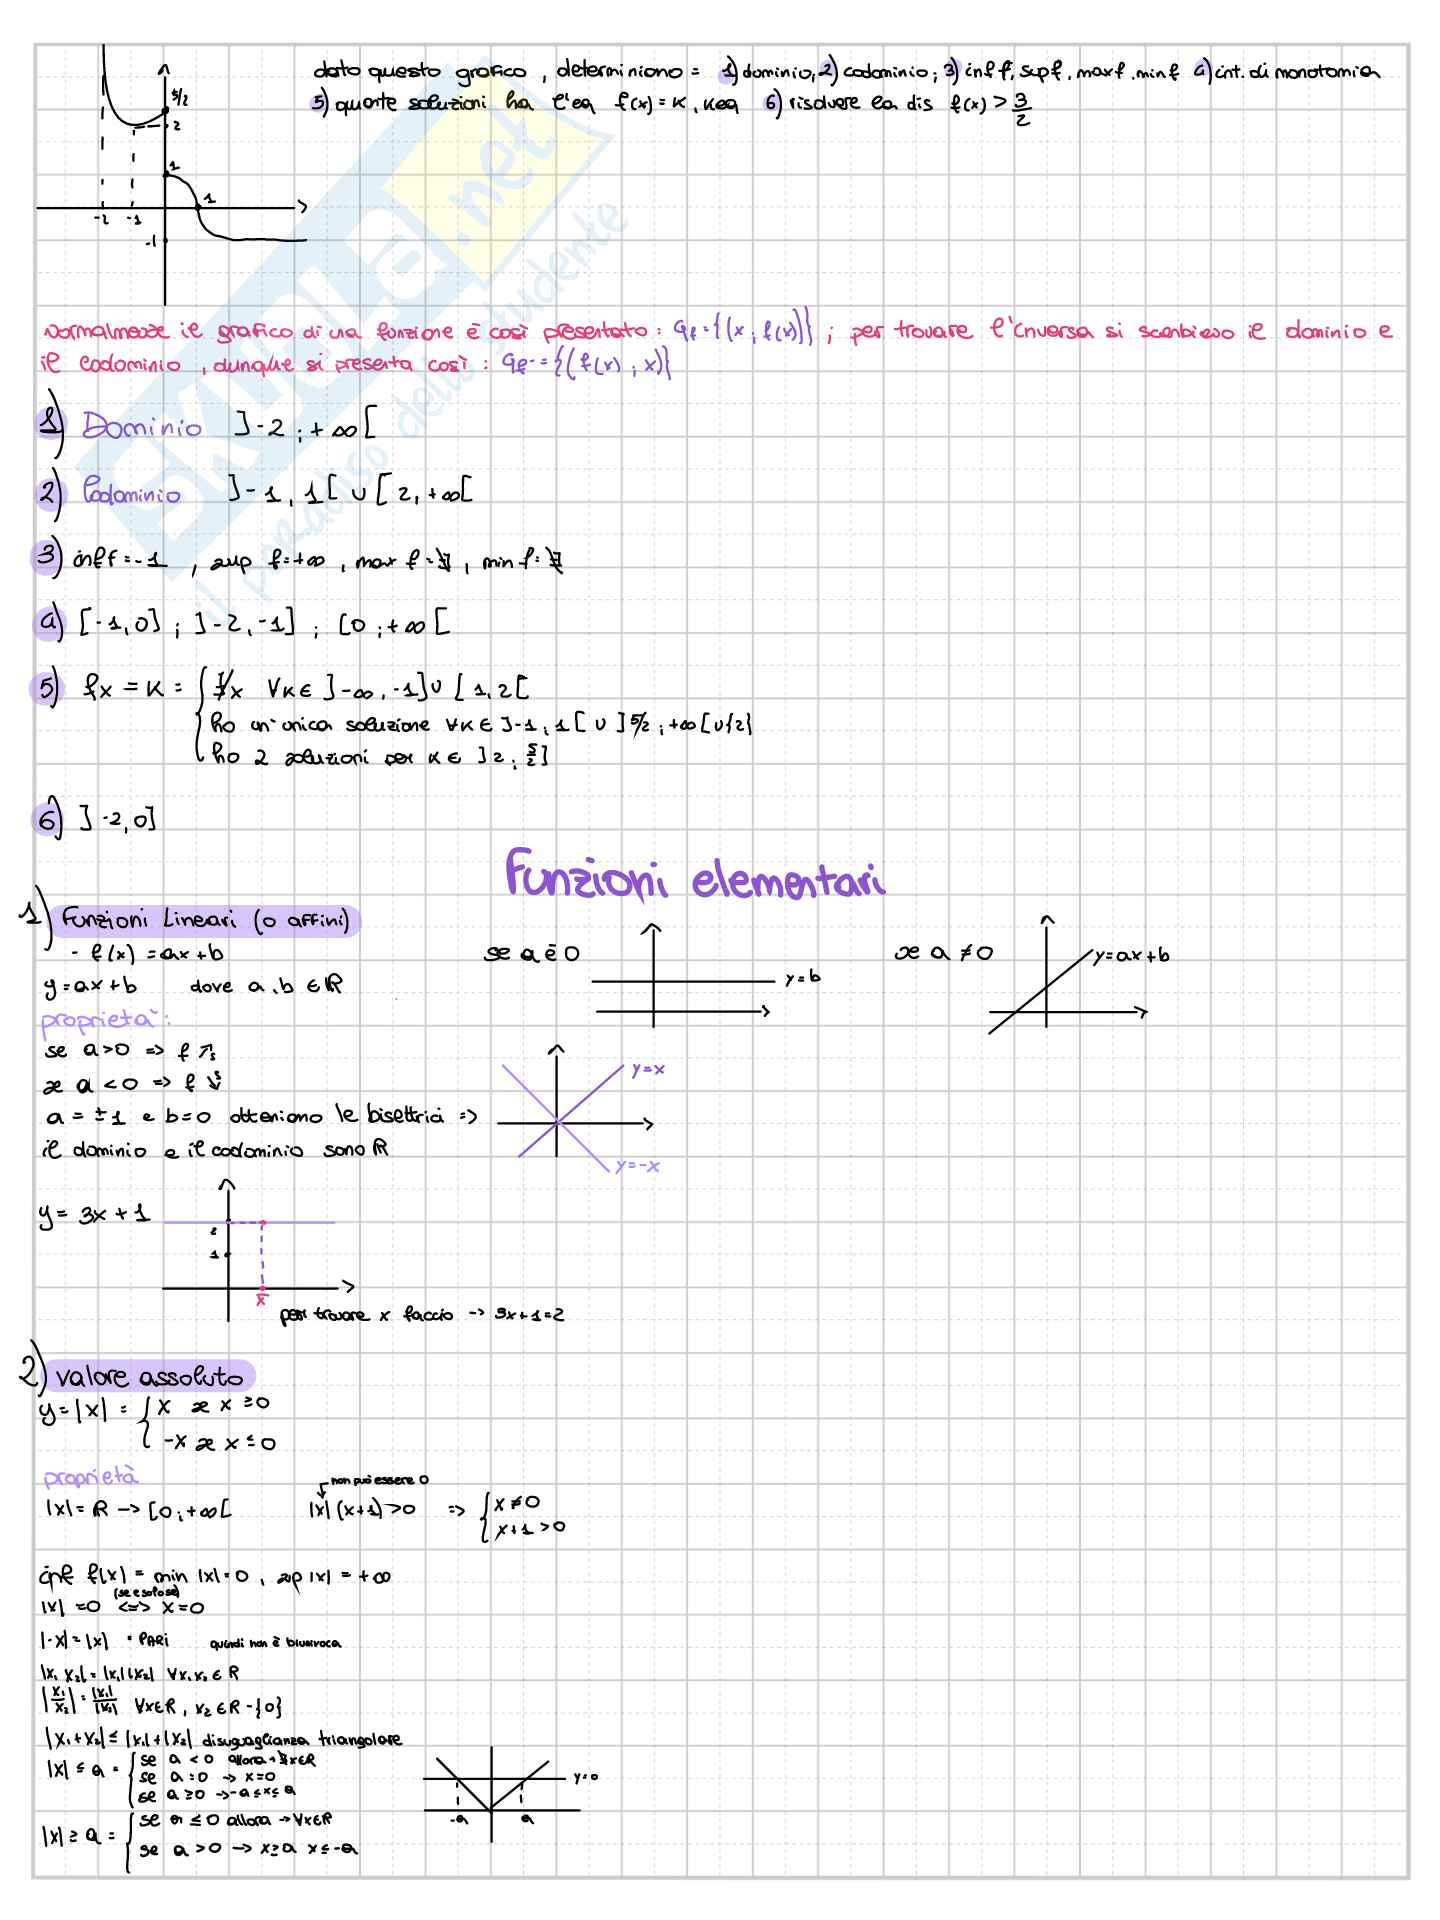 dato questo grafico , determiniamo = 1) dominio, 2) codominio; 3) inf f, sup f, max f, min f 4) int. di monotomia
5) quante soluzioni ha l'eq f(x) = K, K∈ℝ 6) risolvere la dis f(x) > 3/2
5/2
2
1
1
-2 -1
-1
SKUOLA.net
il paradiso dello studente
normalmente il grafico di una funzione è così presentato : Gf = {(x ; f(x))} ; per trovare l'inversa si scambiano il dominio e
il codominio , dunque si presenta così : Gf⁻ = {(f(x) ; x)}
1) Dominio ]-2 ; +∞[
2) Codominio ]-1, 1[ ∪ [2, +∞[
3) inf f = -1 , sup f = +∞ , max f = ∄ , min f = ∄
4) [-1,0] ; ]-2,-1] ; [0 ; +∞[
5) fx = K = { ∄x ∀K ∈ ]-∞, -1] ∪ [1, 2[
ho un'unica soluzione ∀K ∈ ]-1 ; 1[ ∪ ]5/2 ; +∞[ ∪ {2}
ho 2 soluzioni per K ∈ ]2 ; 5/2]
6) ]-2,0]
Funzioni elementari
1) Funzioni Lineari (o affini)
- f(x) = ax + b
se a è 0
y = b
se a ≠ 0
y = ax + b
y = ax + b dove a, b ∈ ℝ
proprietà:
se a > 0 => f ↗s
se a < 0 => f ↘s
a = ±1 e b = 0 otteniamo le bisettrici =>
y = x
y = -x
il dominio e il codominio sono ℝ
y = 3x + 1
2
1
x̄
per trovare x faccio -> 3x + 1 = 2
2) valore assoluto
y = |x| = { x se x ≥ 0
-x se x ≤ 0
proprietà
non può essere 0
|x| = ℝ -> [0 ; +∞[ |x| (x+1) > 0 => { x ≠ 0
x + 1 > 0
inf f(x) = min |x| = 0 , sup |x| = +∞
(se e solo se)
|x| = 0 <=> x = 0
|-x| = |x| • PARI quindi non è biunivoca
|x₁ x₂| = |x₁| |x₂| ∀x₁ x₂ ∈ ℝ
|x₁/x₂| = |x₁|/|x₂| ∀x∈ℝ, x₂ ∈ ℝ - {0}
|x₁ + x₂| ≤ |x₁| + |x₂| disuguaglianza triangolare
|x| ≤ a = { se a < 0 allora -> ∄x∈ℝ
se a = 0 -> x = 0
se a ≥ 0 -> -a ≤ x ≤ a
y = 0
-a a
|x| ≥ a = { se a ≤ 0 allora -> ∀x∈ℝ
se a > 0 -> x ≥ a x ≤ -a